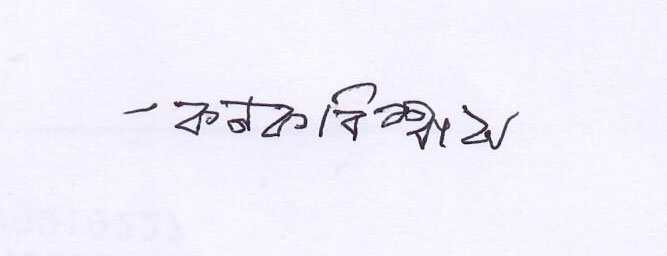 - কনক বিশ্বাস